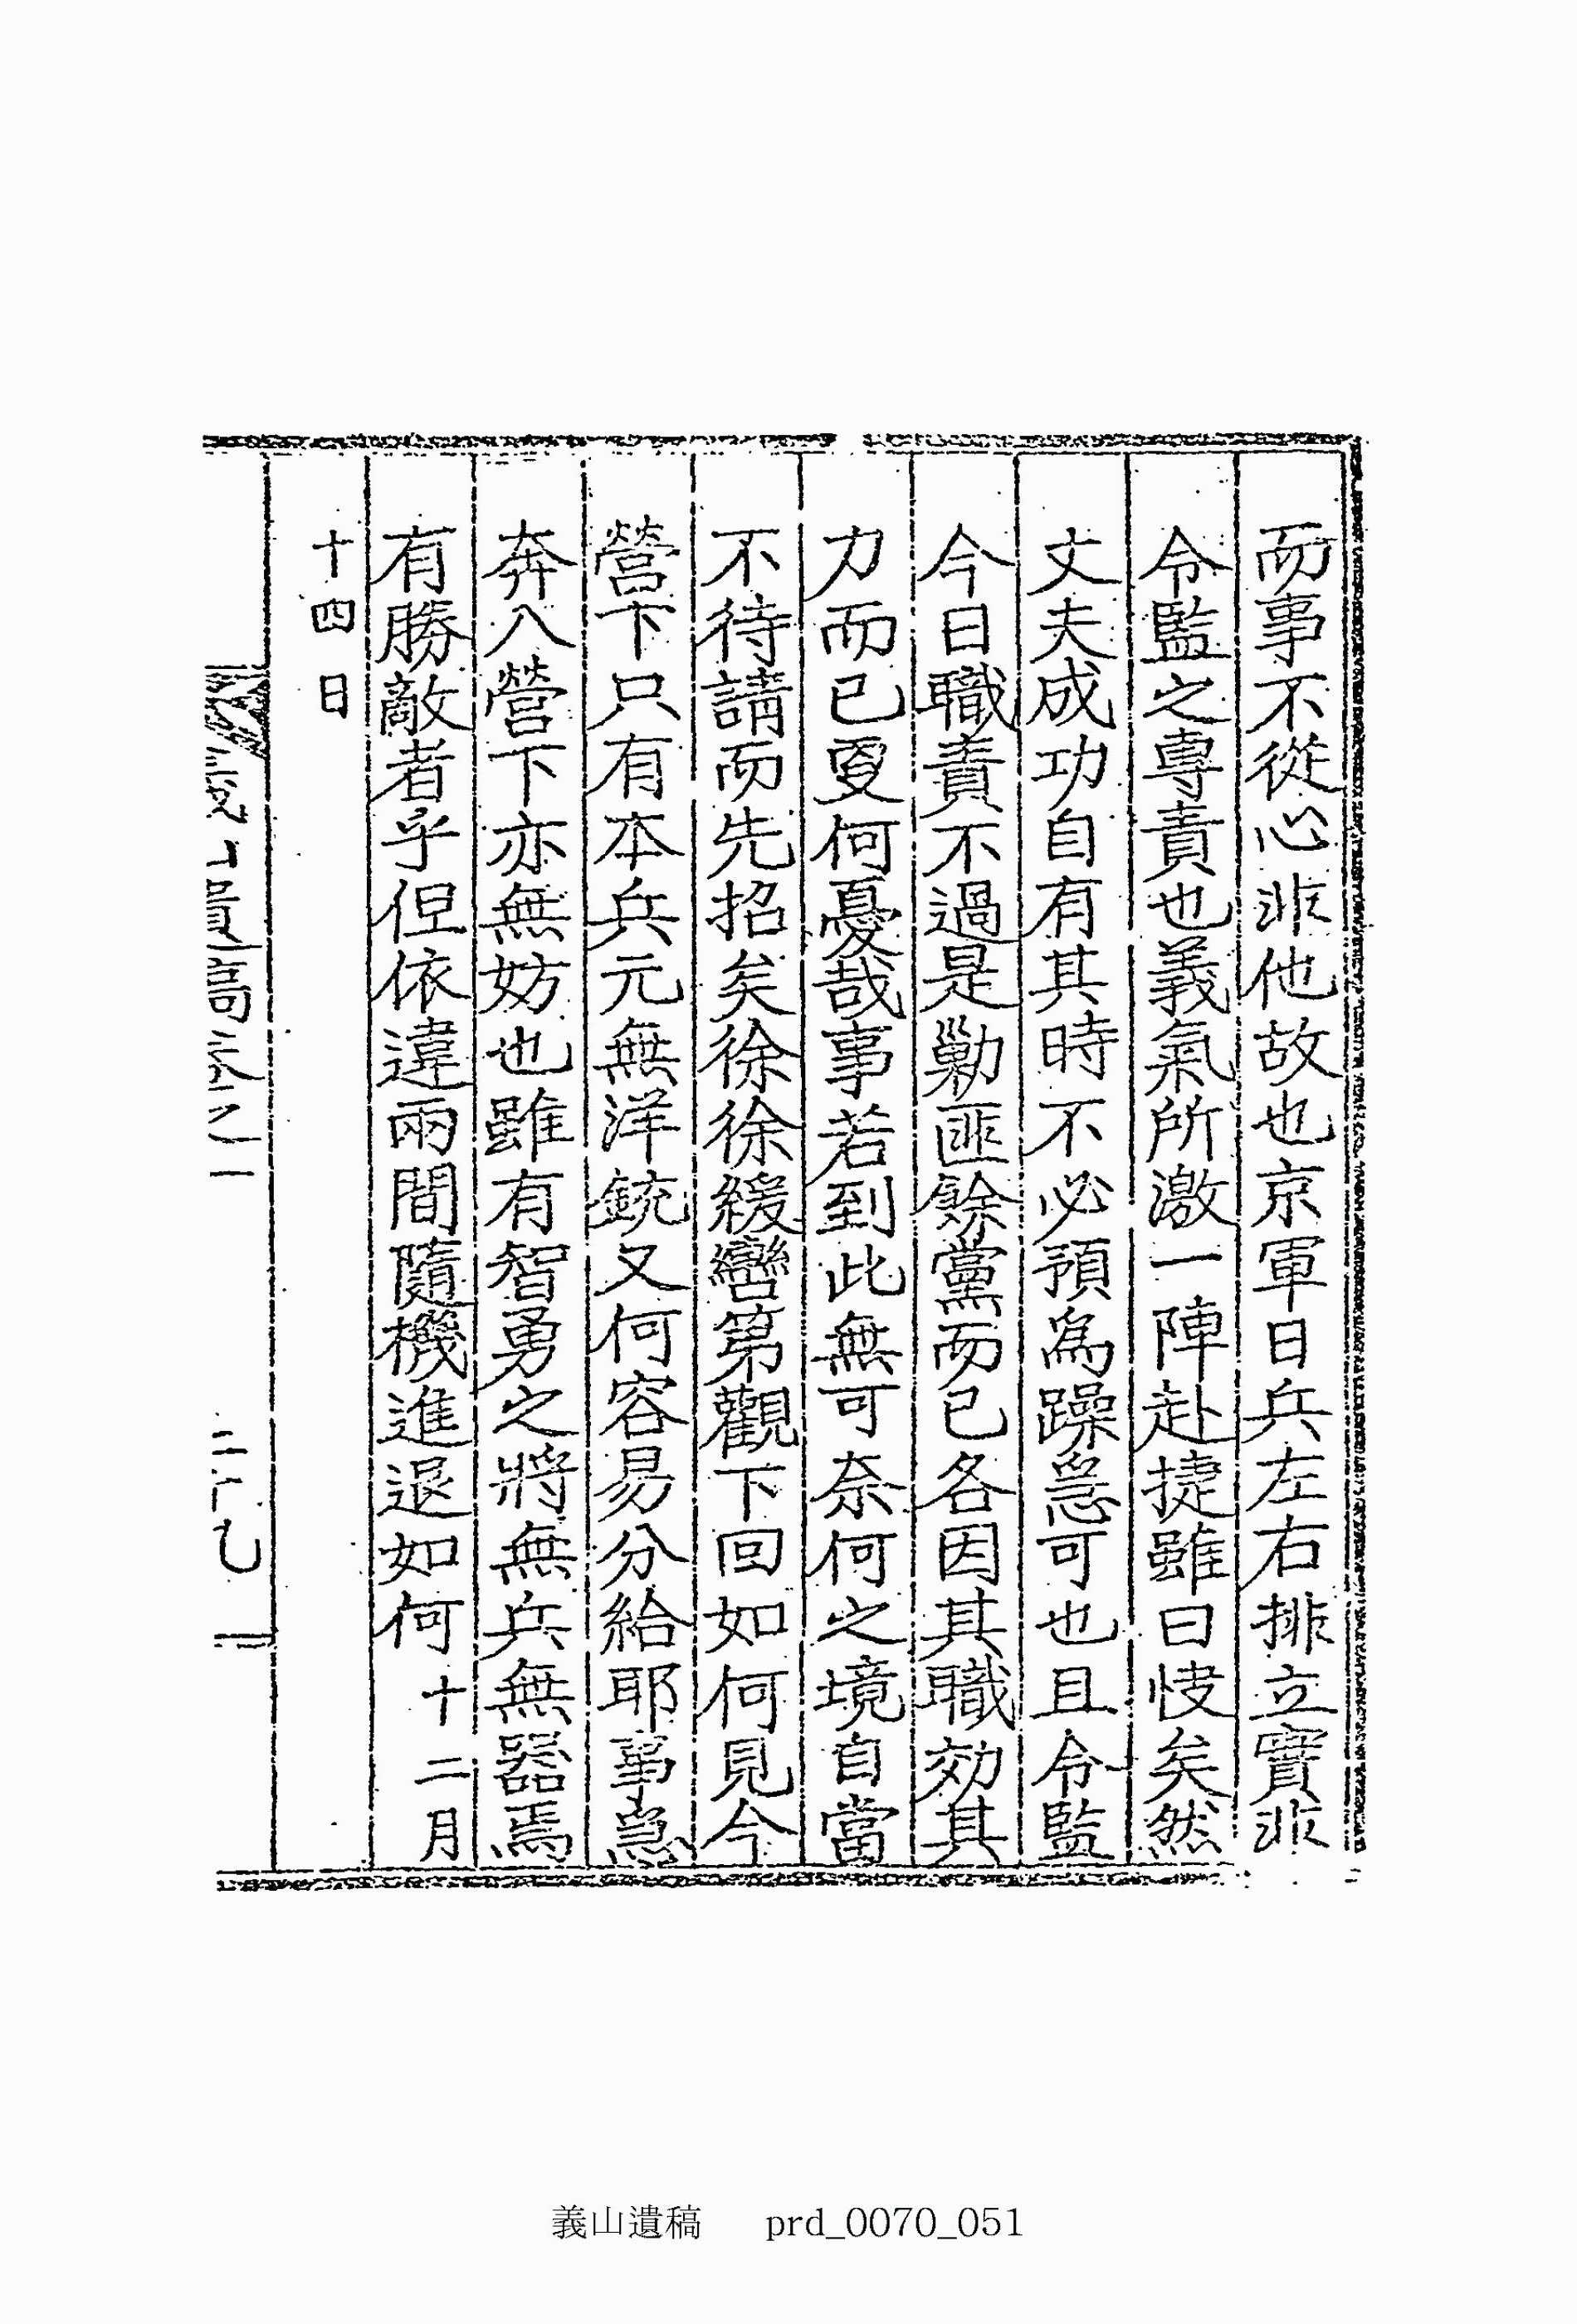 而事不從心非他故也京軍日兵左右排立實非
令監之專責也義氣所激一陣赴捷雖曰快矣然
丈夫成功自有其時不必預爲躁急可也且令監
今日職責不過是勦匪餘黨而已各因其職效其
力而已更何憂哉事若到此無可奈何之境自當
不待請而先招矣徐徐緩轡第觀下回如何見今
營下只有本兵元無洋銃又何容易分給耶事急
奔入營下亦無妨也雖有智勇之將無兵無器焉
有勝敵者乎但依違兩間隨機進退如何十二月
十四日
義山遺稿 prd_0070_051